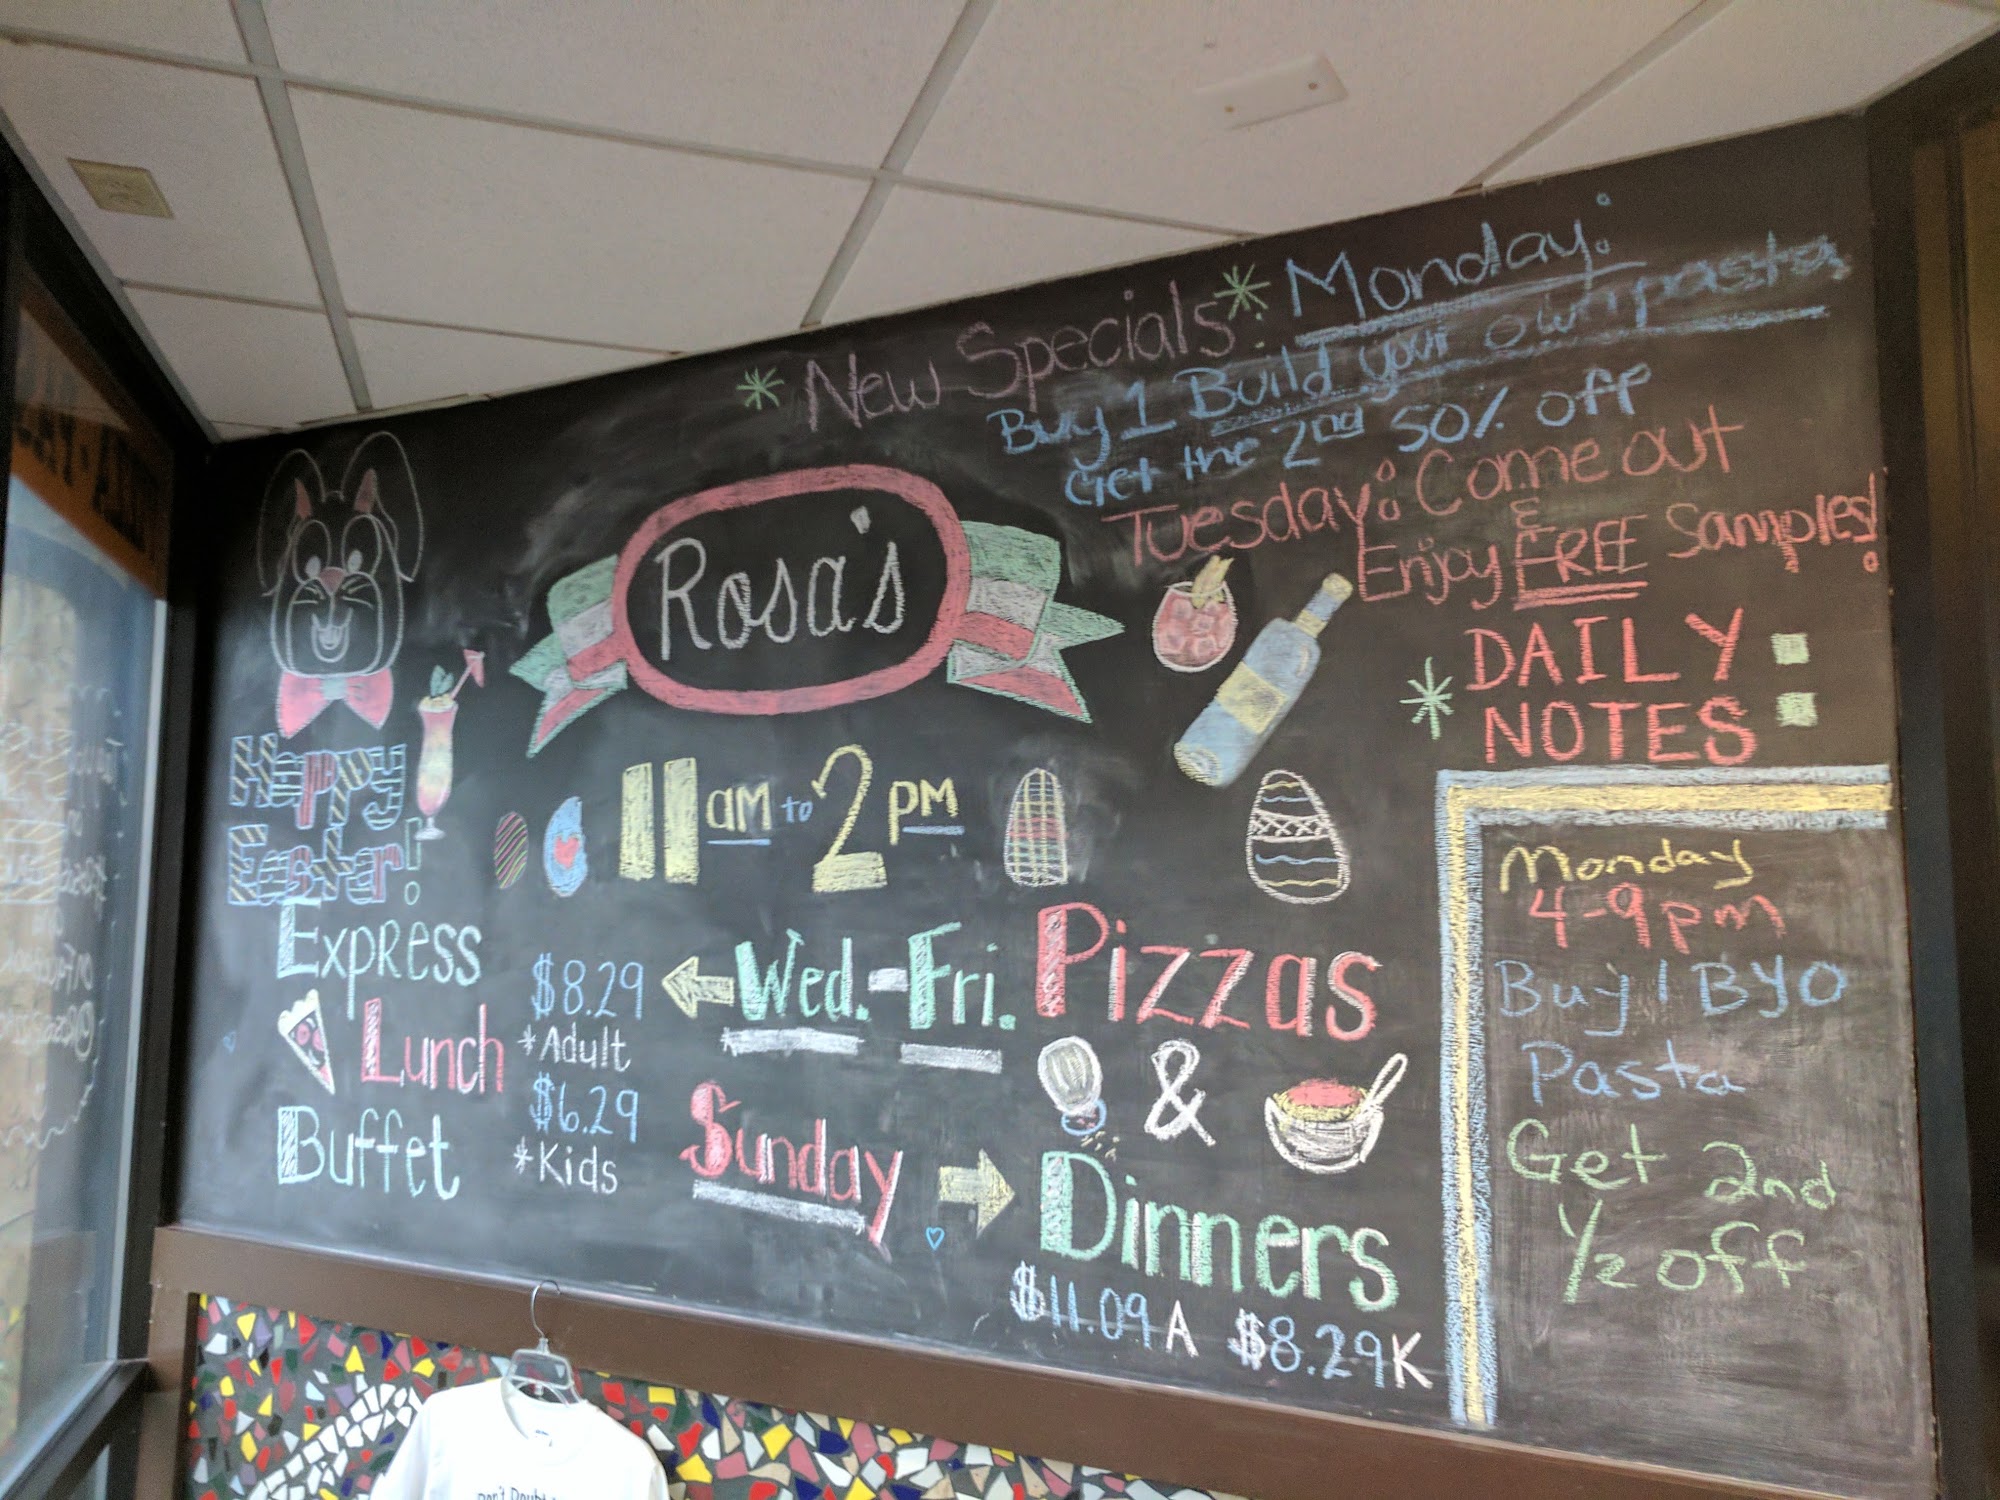 New Specials
Monday:
Buy 1 Build your own pasta
Get the 2nd 50% off
Tuesday: Come out
Enjoy FREE Samples!
Rosa's
DAILY
NOTES
Happy
Easter!
11 am to 2 pm
Express
Lunch
Buffet
$8.29
*Adult
$6.29
*Kids
Wed.-Fri.
Sunday
Pizzas
&
Dinners
$11.09 A $8.29 K
Monday
4-9pm
Buy 1 BYO
Pasta
Get 2nd
1/2 off
Don't Doubt